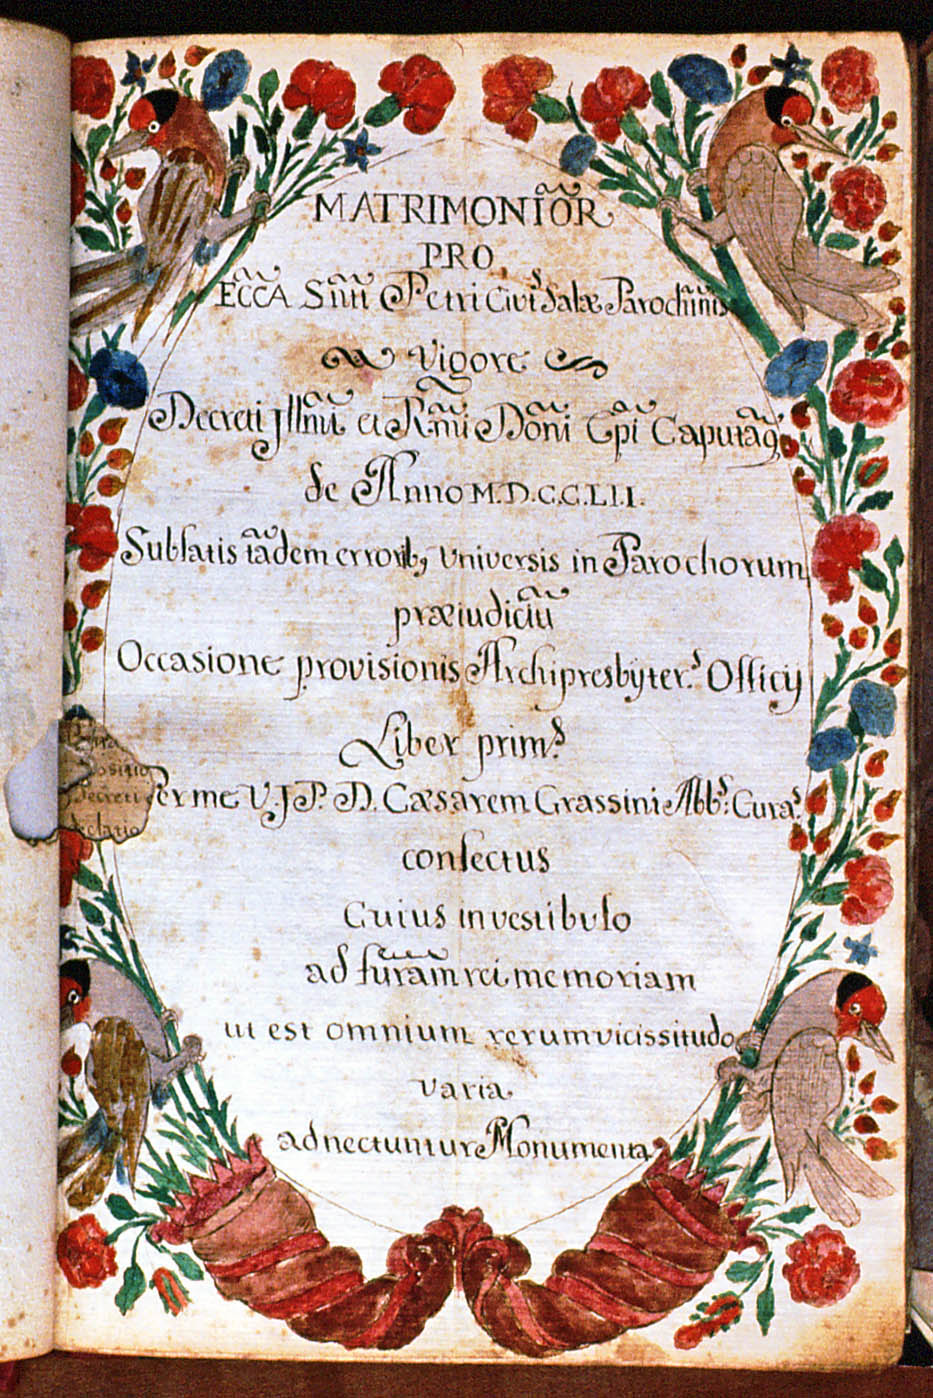 MATRIMONIOR̃
PRO
ECCÃ Sm̃i Petri Civit.s Salæ Parochm̃is
Vigore
Decreti Jllm̃i et Rm̃i Dom̃i Ep̃i Caputaq̃
de Anno M.D.C.C.LII.
Sublatis tãdem errorib, Universis in Parochorum
præiudiciũ
Occasione provisionis Archipresbyter.s Officij
Liber prim.s
Per me V.J.P. D. Cæsarem Grassini Abb.s: Cura.s
confectus
Cuius in vestibulo
ad fur̃am rei memoriam
ut est omnium rerum vicissitudo
varia
adnectuntur Monumenta
Decreti